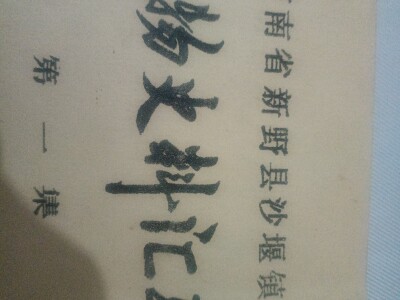 南省新野县沙堰镇
物史料汇
第一集